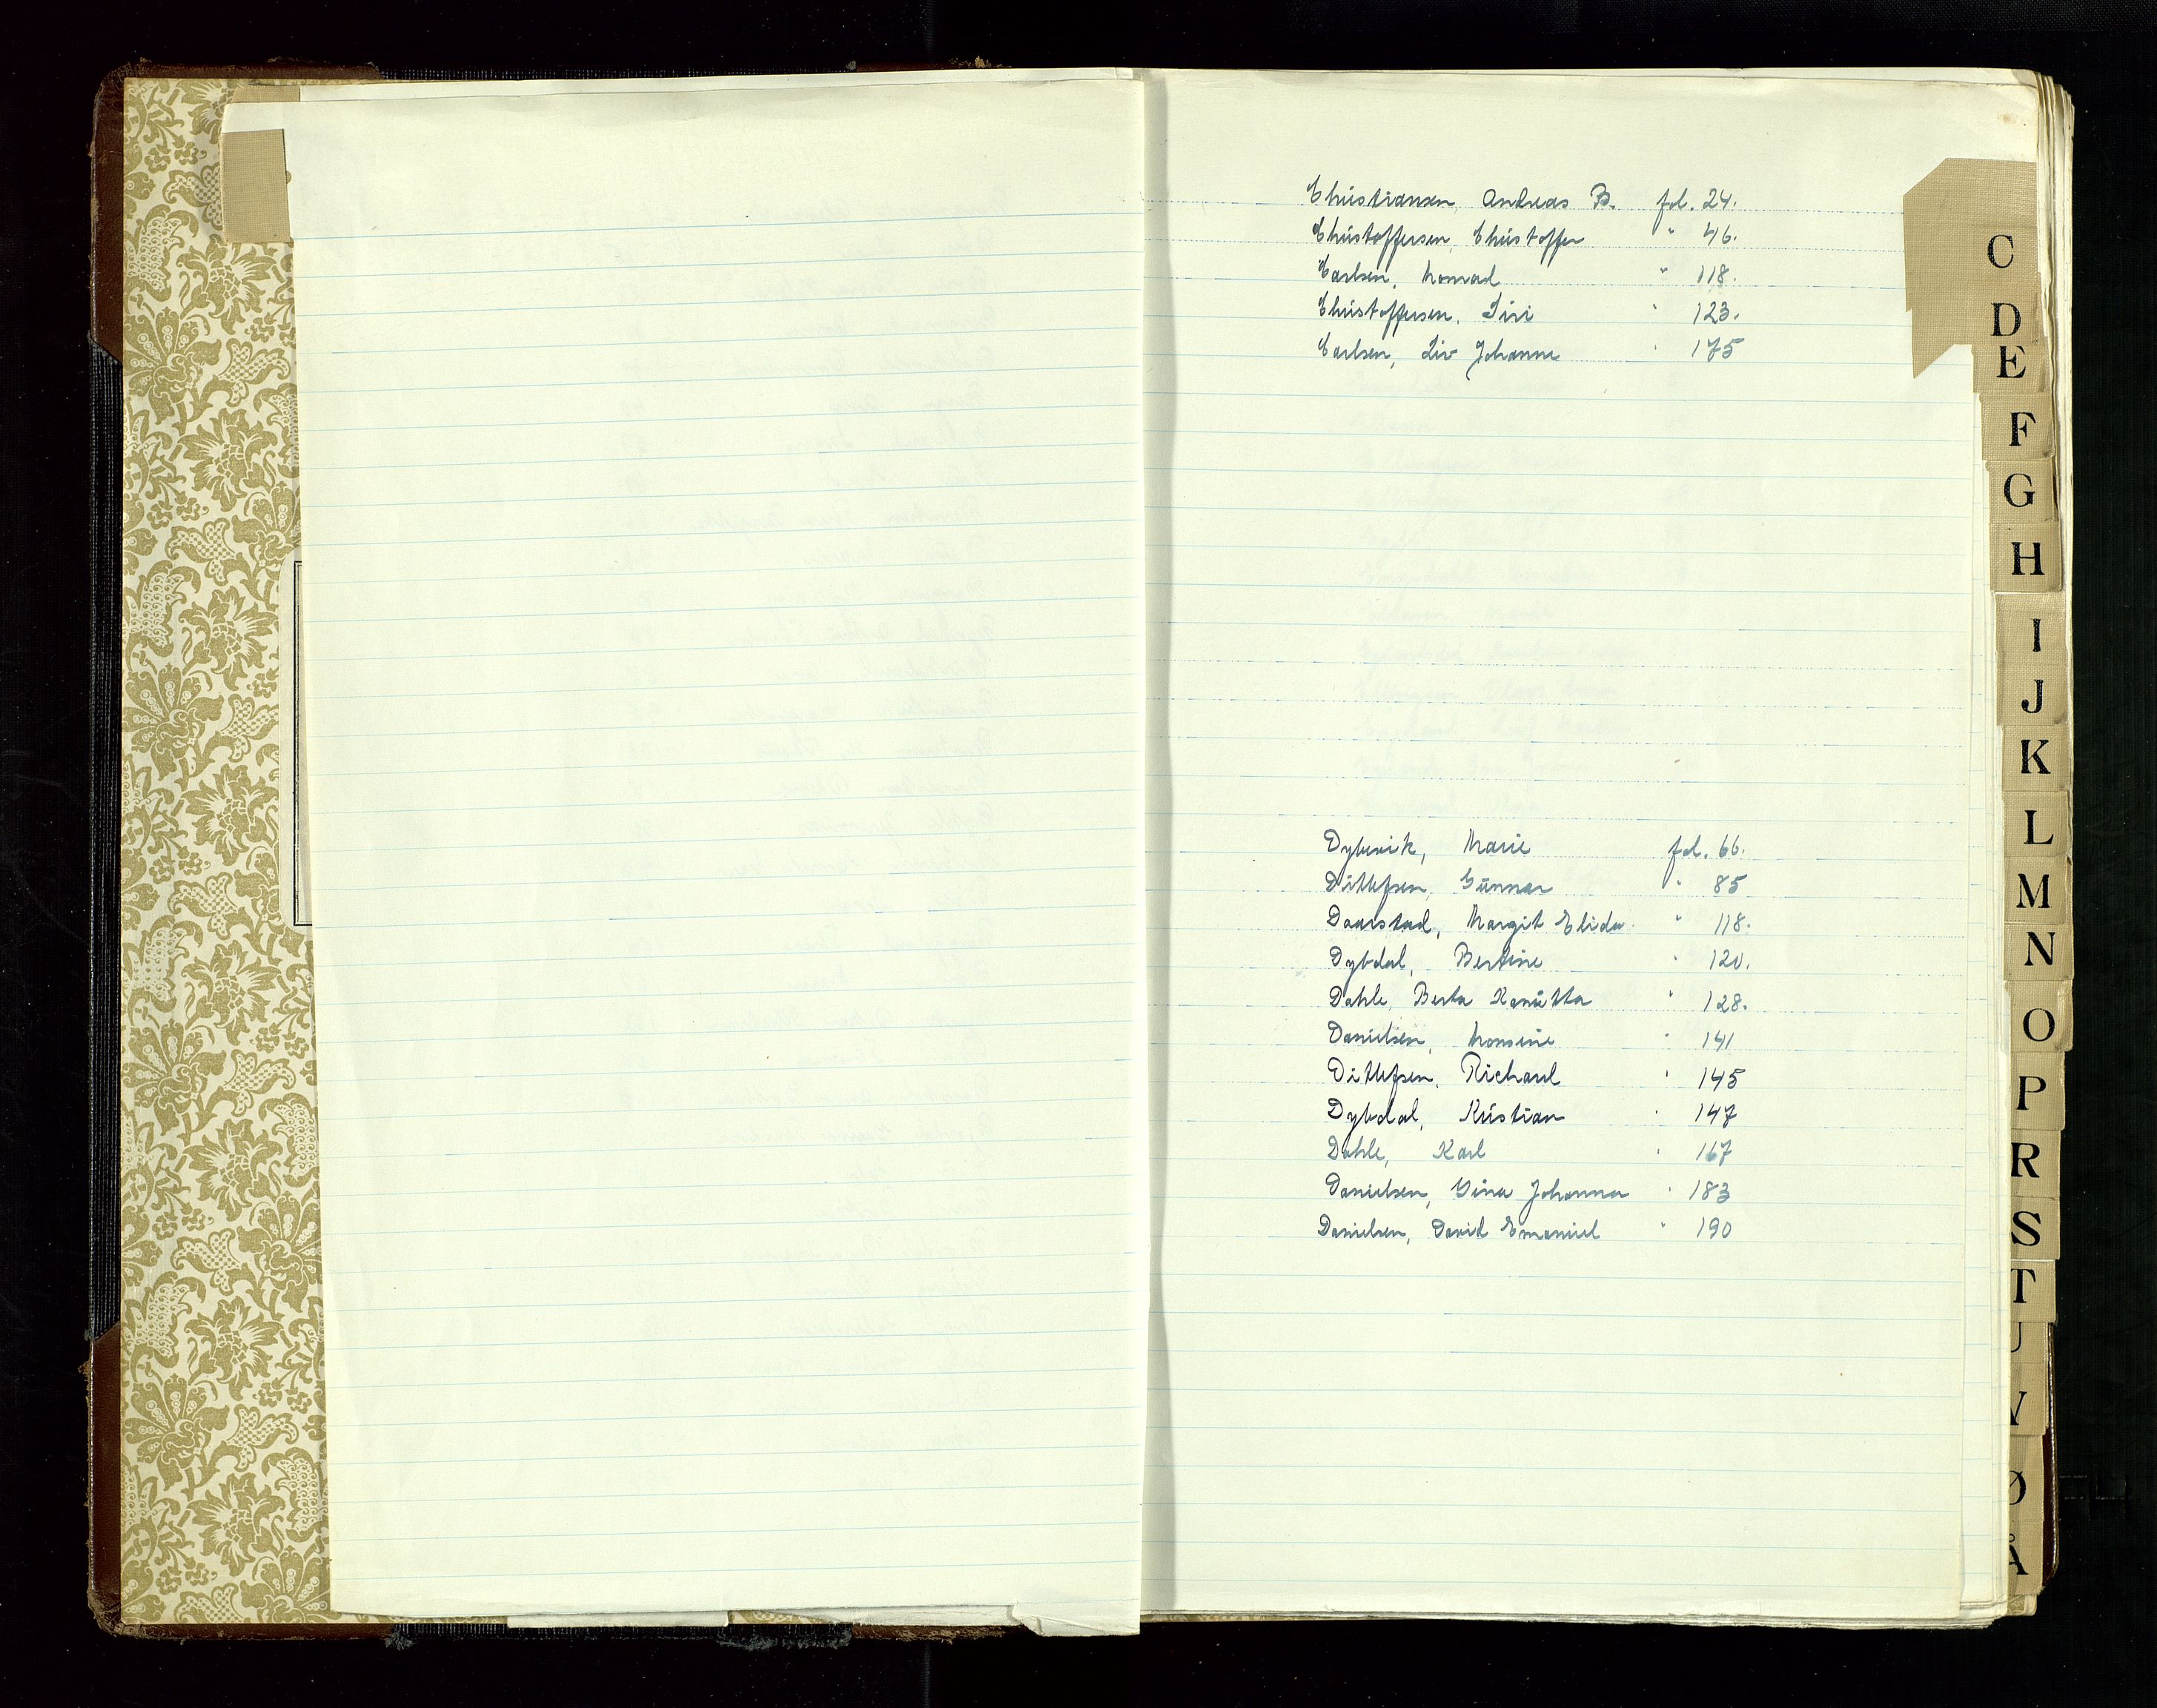 Christiansen, Andreas B. fol. 24.
Christoffersen, Christoffer " 46.
Carlsen, Konrad " 118.
Christoffersen, Siri " 123.
Carlsen, Liv Johanne " 175
Dybvik, Marie fol. 66.
Ditlefsen, Gunnar " 85
Daarstad, Margit Elida " 118.
Dybdal, Bertine " 120.
Dahle, Berta " 128.
Danielsen, Monsine " 141
Ditlefsen, Richard " 145
Dybdal, Kristian " 147
Dahle, Karl " 167
Danielsen, Gina Johanna " 183
Danielsen, David Emanuel " 190
C
D
E
F
G
H
I
J
K
L
M
N
O
P
R
S
T
U
V
Ø
Å